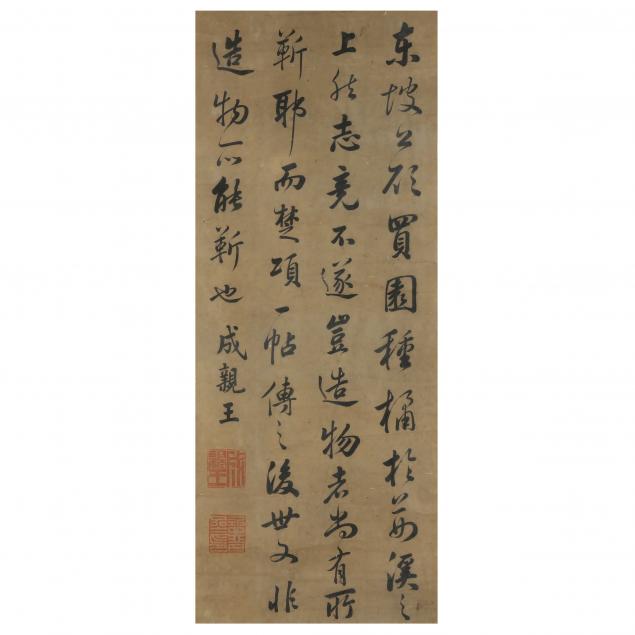 东坡公欲買園種橘於荊溪之
上然志竟不遂豈造物者尚有所
靳耶而楚頌一帖傳之後世又非
造物所能靳也 成親王